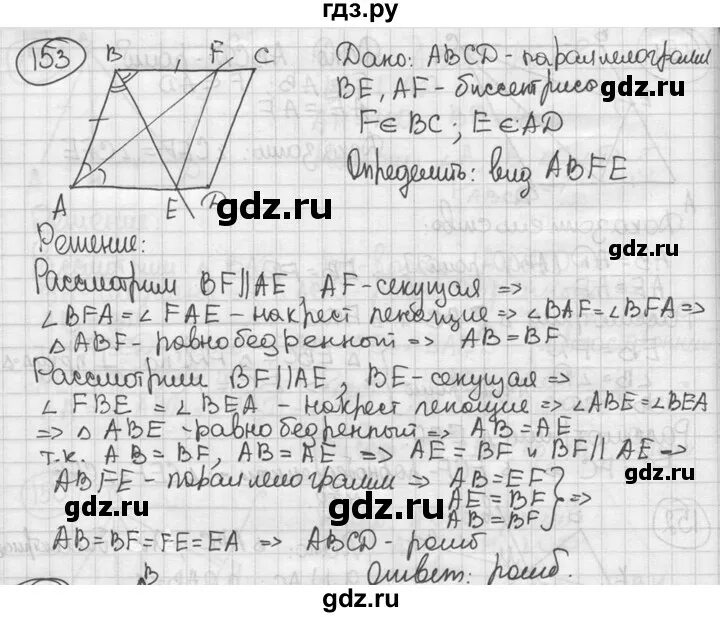 гдз.ру
153
B F C
A E D
Дано: ABCD - параллелограмм
BE, AF - биссектрисы
F ∈ BC ; E ∈ AD
Определить: вид ABFE
gdz.ru
gdz.ru
gdz.ru
Решение:
Рассмотрим BF || AE , AF - секущая =>
∠BFA = ∠ FAE - накрест лежащие => ∠BAF = ∠BFA =>
△ ABF - равнобедренный => AB = BF
Рассмотрим BF || AE , BE - секущая =>
∠ FBE = ∠BEA - накрест лежащие => ∠ABE = ∠BEA
=> △ ABE - равнобедренный => AB = AE
т.к. AB = BF, AB = AE => AE = BF и BF || AE =>
ABFE - параллелограмм => AB = EF
AE = BF } =>
AB = BF
AB = BF = FE = EA => ABCD - ромб
Ответ: ромб.
gdz.ru
gdz.ru
gdz.ru
gdz.ru
gdz.ru
B
gdz.ru
gdz.ru